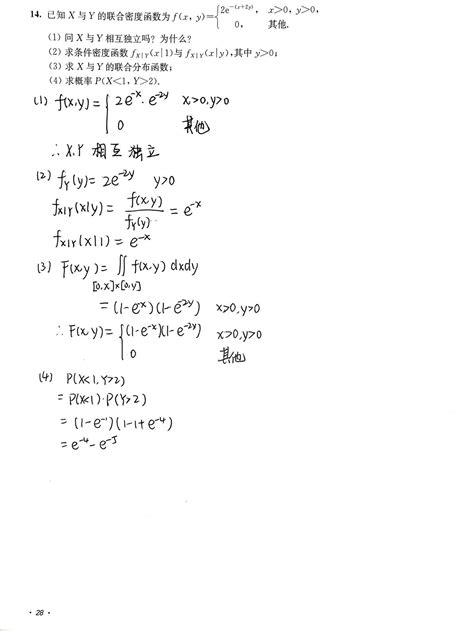 14. 已知 X 与 Y 的联合密度函数为 f(x, y)={2e^{-(x+2y)}, x>0, y>0,
0, 其他.
(1) 问 X 与 Y 相互独立吗? 为什么?
(2) 求条件密度函数 f_{X|Y}(x|1)与 f_{X|Y}(x|y),其中 y>0;
(3) 求 X 与 Y 的联合分布函数;
(4) 求概率 P(X<1, Y>2).
(1) f(x,y) = { 2e^{-x}·e^{-2y} x>0, y>0
0 其他
∴ X,Y 相互独立
(2) f_Y(y) = 2e^{-2y} y>0
f_{X|Y}(x|y) = f(x,y)/f_Y(y) = e^{-x}
f_{X|Y}(x|1) = e^{-x}
(3) F(x,y) = ∬ f(x,y) dxdy
[0,x]×[0,y]
= (1-e^{x})(1-e^{-2y}) x>0, y>0
∴ F(x,y) = { (1-e^{-x})(1-e^{-2y}) x>0, y>0
0 其他
(4) P(X<1, Y>2)
= P(X<1)·P(Y>2)
= (1-e^{-1})(1-1+e^{-4})
= e^{-4}-e^{-5}
· 28 ·